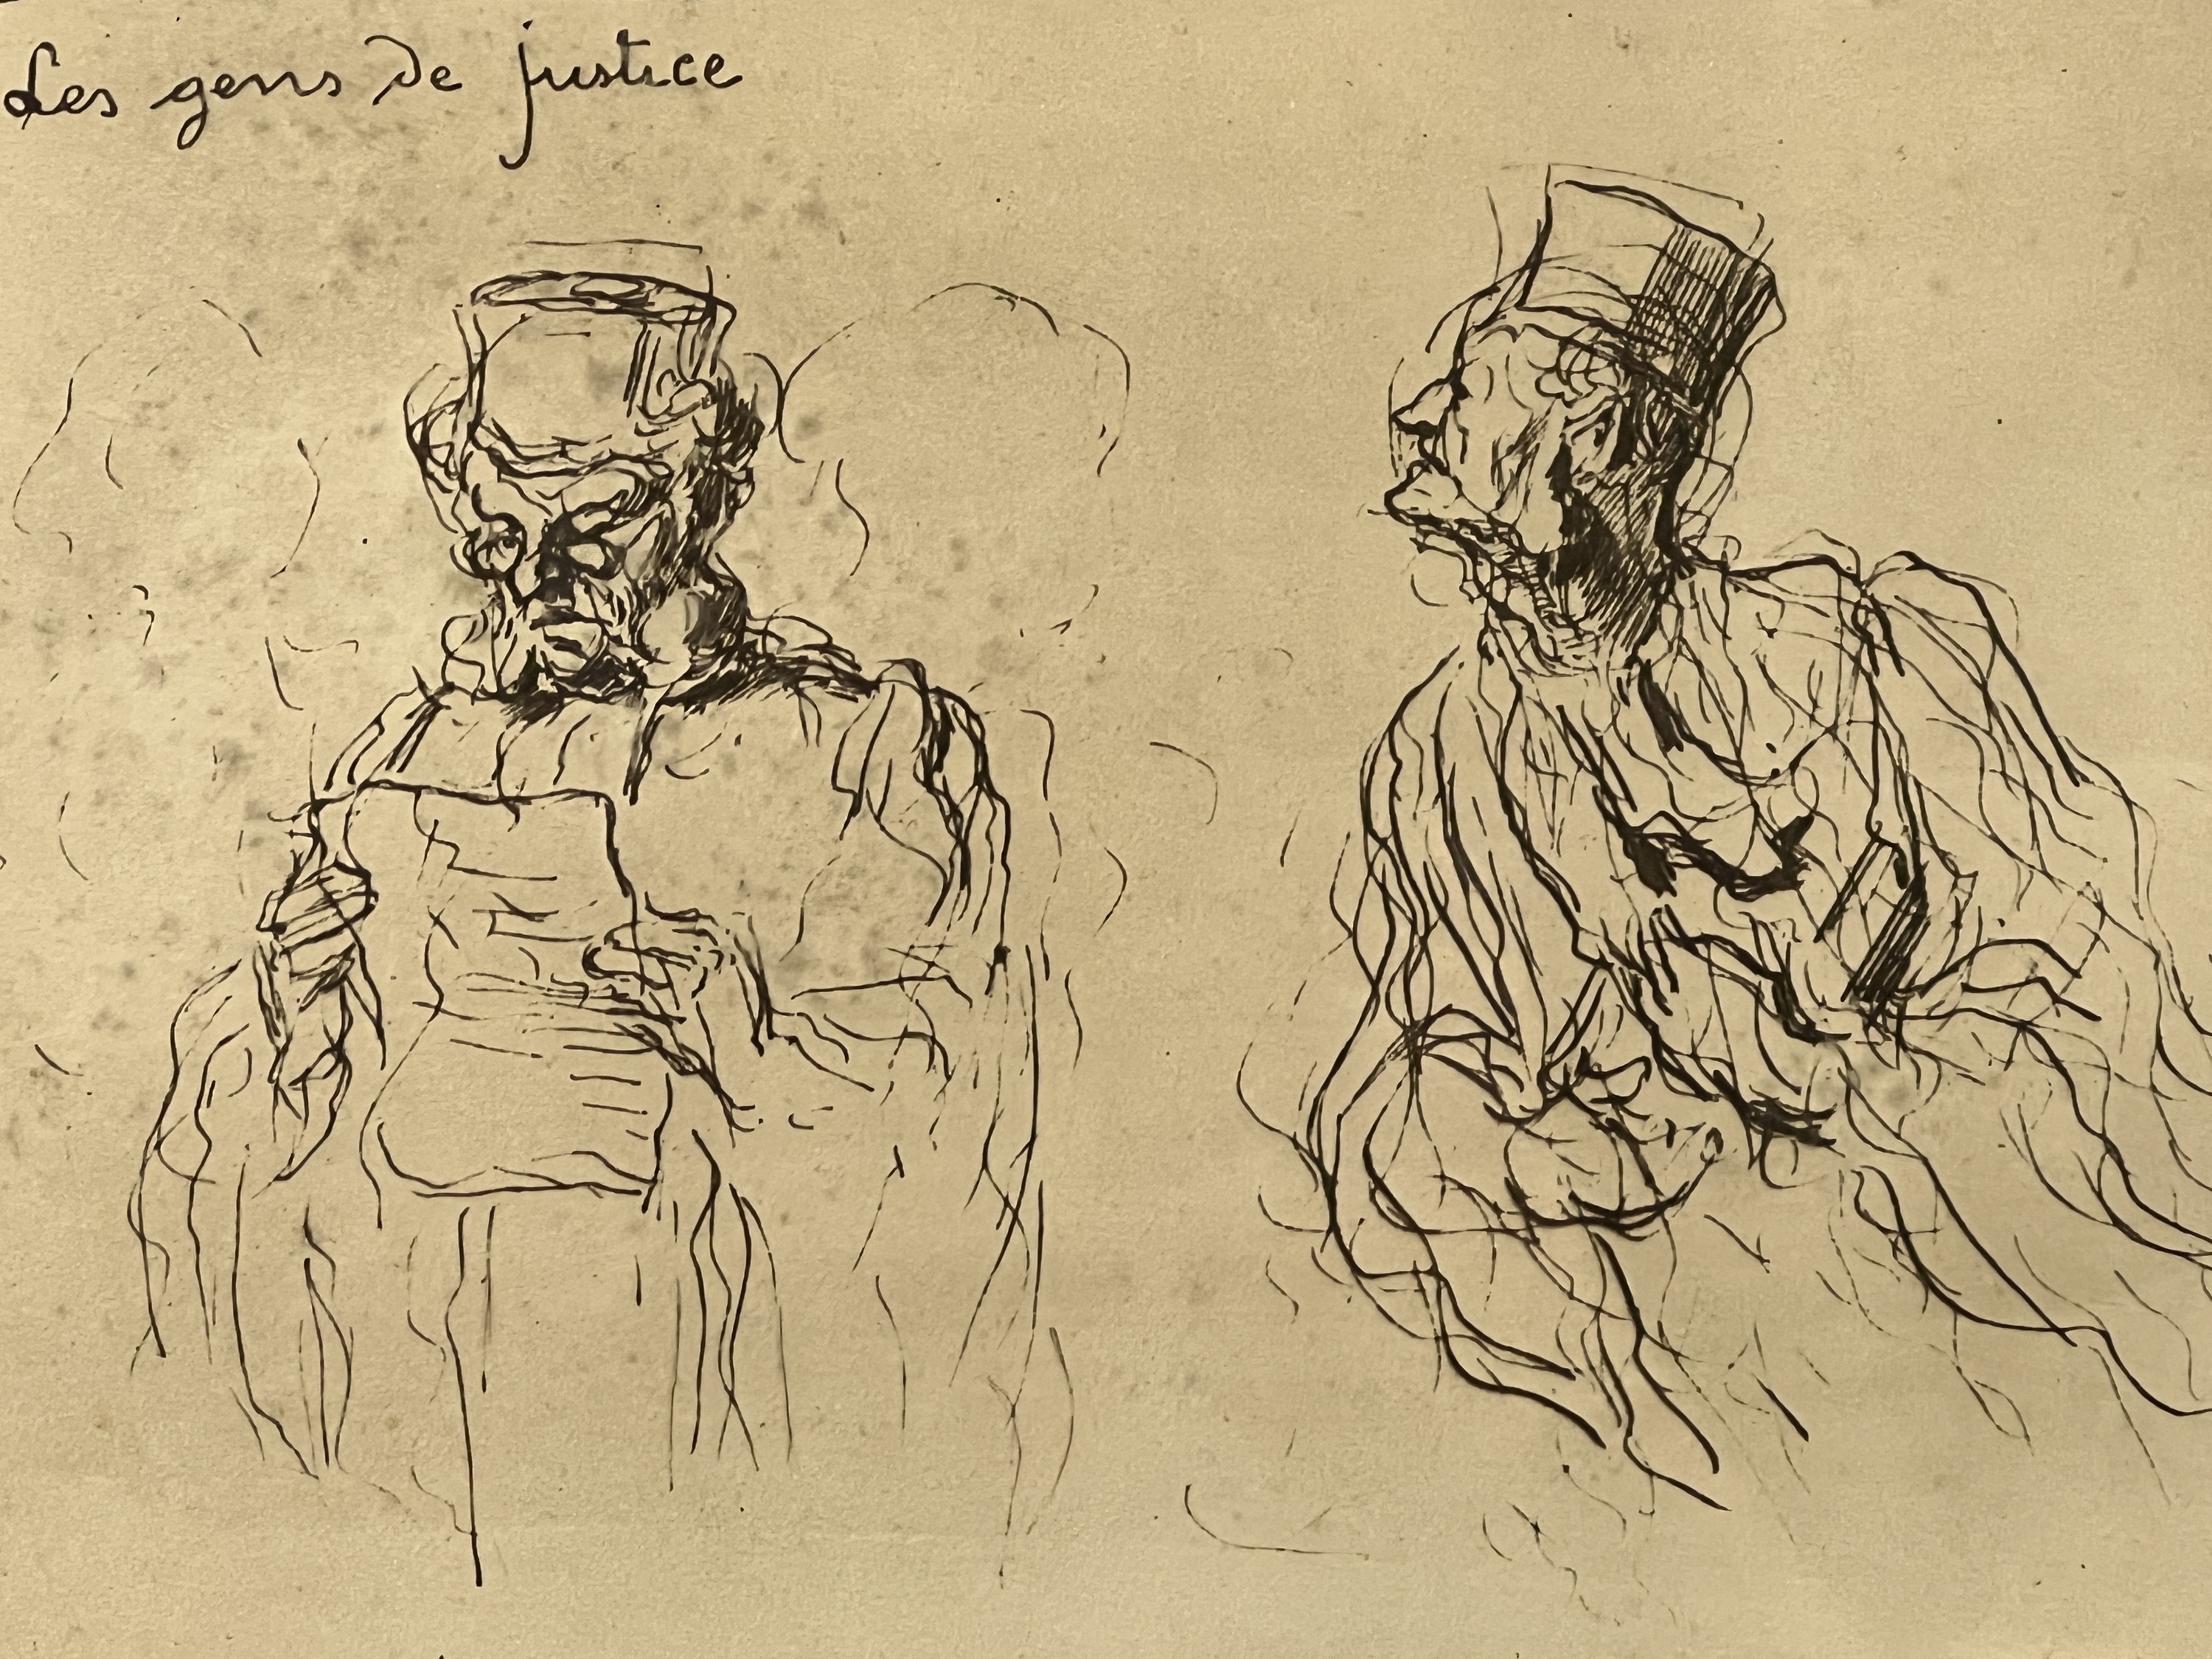 Les gens de justice